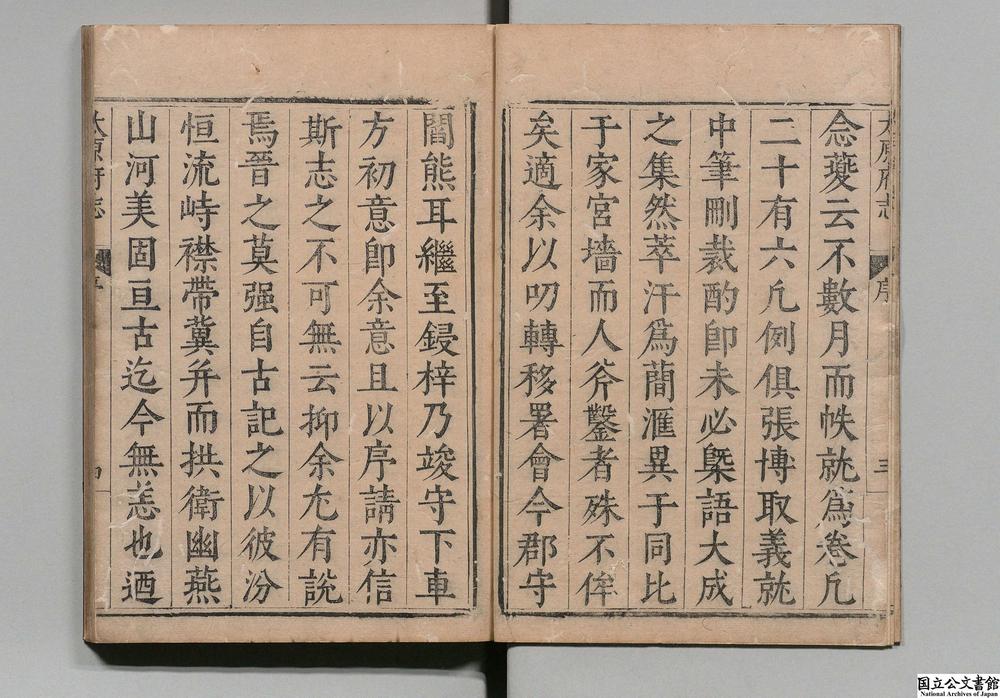 太原府志
序
三
念夔云不數月而帙就爲卷凡
二十有六凡例俱張博取義就
中筆刪裁酌卽未必槩語大成
之集然萃汗爲蕑滙異于同比
于家宮墻而人斧鑿者殊不侔
矣適余以叨轉移署會今郡守
閻熊耳繼至鋟梓乃竣守下車
方初意卽余意且以序請亦信
斯志之不可無云抑余尢有説
焉晉之莫强自古記之以彼汾
恒流峙襟帶冀并而拱衛幽燕
山河美固亘古迄今無恙也迺
太原府志
序
四
国立公文書館
National Archives of Japan